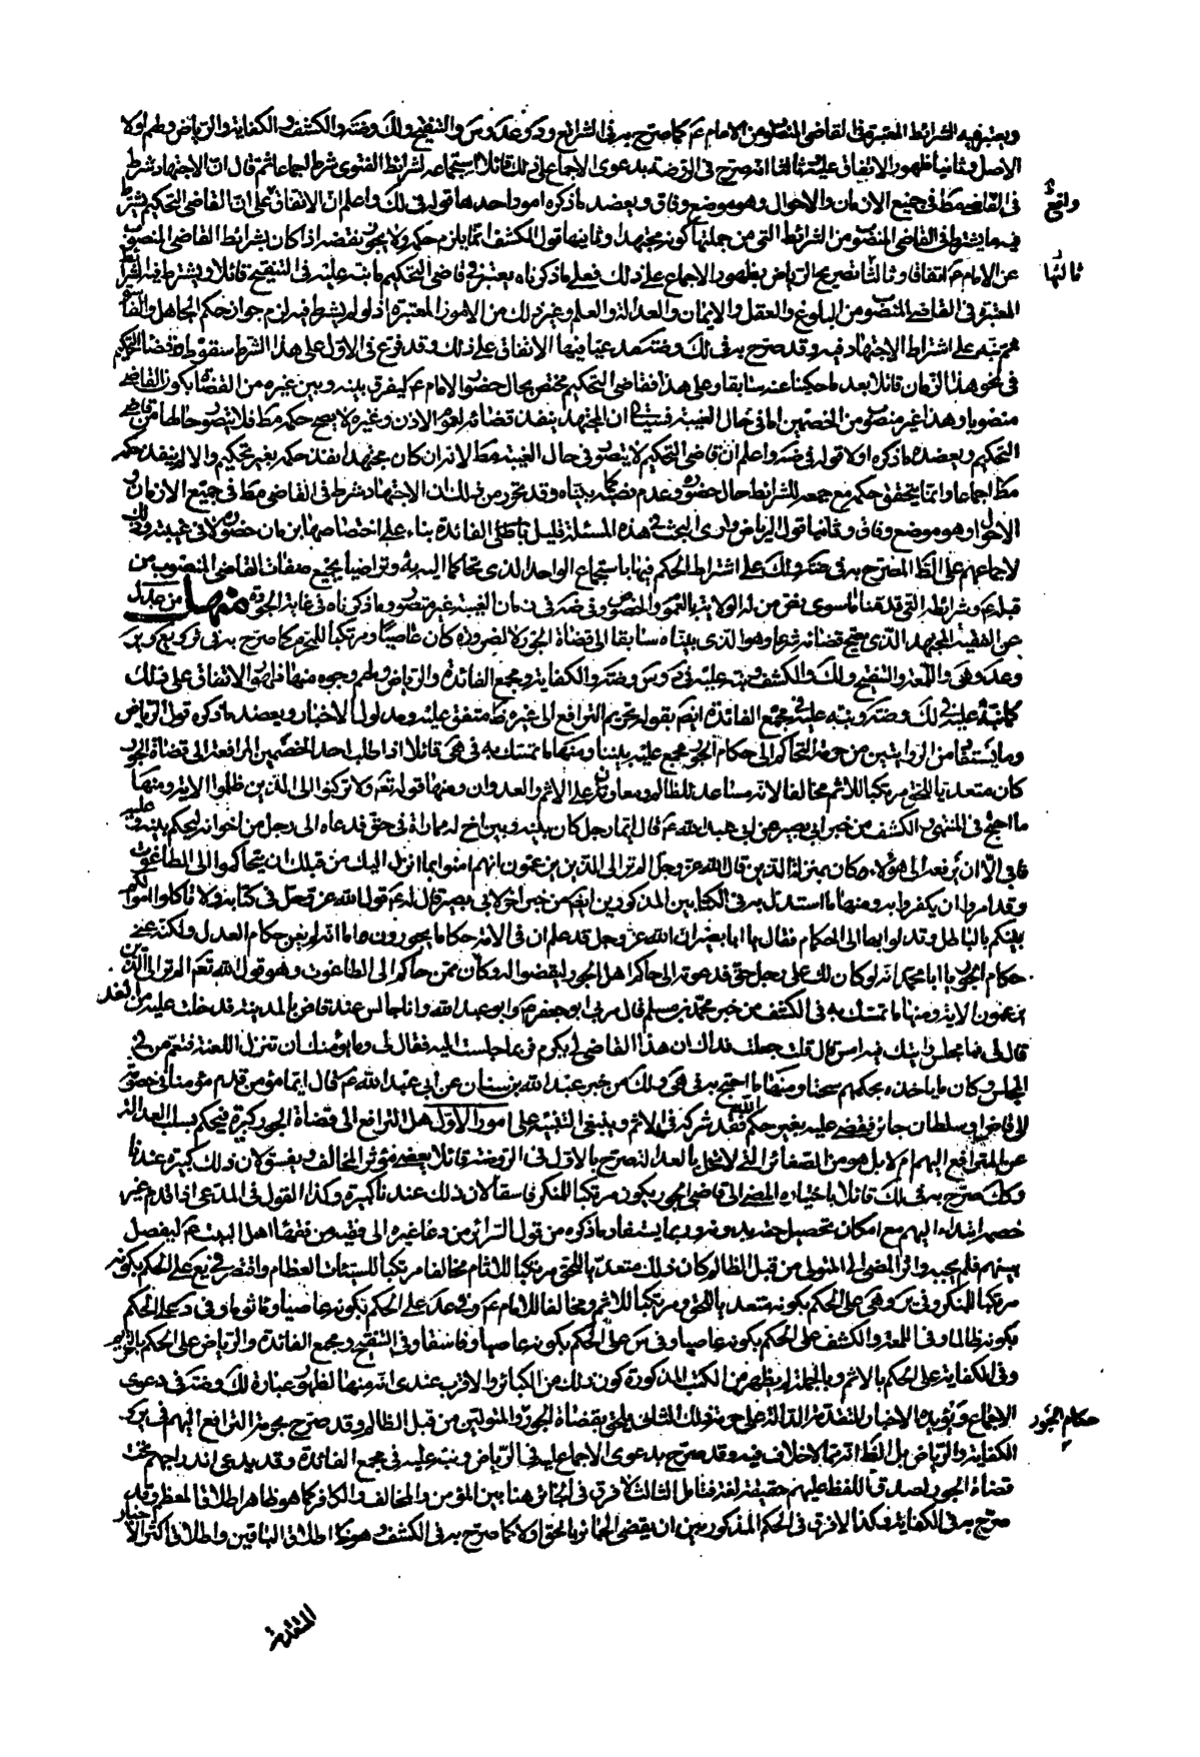 ويعتبر فيه الشرائط المعتبرة في القاضي المنصوب من الامام ع كما صرح به في الشرائع و د و عد و س والتنقيح ولك وضة والكشف والكفاية والرياض ولهم اولا
الاصل وثانيا ظهور الاتفاق عليه وثالثا انه صرح في الروضة بدعوى الاجماع على ذلك قائلا استجماعه لشرائط الفتوى شرط اجماعا ثم قال ان الاجتهاد شرط
في القاضي مط في جميع الازمان والاحوال وهو موضع وفاق ويعضد ما ذكره امور احدها قوله في لك واعلم ان الاتفاق واقع على ان قاضي التحكيم يشترط
فيه ما يشترط في القاضي المنصوب من الشرائط التي من جملتها كونه مجتهدا وثانيها قول الكشف انما يلزم حكمه ولا يجوز نقضه اذا كان بشرائط القاضي المنصوب
عن الامام ع اتفاقا وثالثها تصريح الرياض بظهور الاجماع على ذلك فعلى ما ذكرناه يعتبر في قاضي التحكيم ما نبه عليه في التنقيح قائلا ويشترط فيه الشرائط
المعتبرة في القاضي المنصوب من البلوغ والعقل والايمان والعدالة والعلم وغير ذلك من الامور المعتبرة اذ لو لم يشترط فيه لزم جواز حكم الجاهل والفاسق
في نحو هذا الزمان قائلا بعد ما حكينا عنه سابقا وعلى هذا فقاضي التحكيم مختص بحال حضور الامام ع ليفرق بينه وبين غيره من القضاة بكون القاضي
منصوبا وهذا غير منصوب من الخصمين اما في حال الغيبة فسياتي ان المجتهد ينفذ قضائه لعموم الاذن وغيره لا يصح حكمه مط فلا يتصور حالها قاضي
التحكيم ويعضد ما ذكره اولا قوله في ضة واعلم ان قاضي التحكيم لا يتصور في حال الغيبة مط لانه ان كان مجتهدا نفذ حكمه بغير تحكيم والا لم ينفذ حكمه
مط اجماعا وانما يتحقق حكمه مع جمعه للشرائط حال حضوره وعدم نصبه كما بيناه وقد تحرر من ذلك ان الاجتهاد شرط في القاضي مط في جميع الازمان و
الاحوال وهو موضع وفاق وثانيها قول الرياض وارى البحث في هذه المسئلة قليل الفائدة بناء على اختصاصها بزمان حضوره لا في غيبته وذلك
لاجماعهم على الظ المصرح به في ضة ولك على اشتراط الحكم فيها باستجماع الواحد الذي تحاكما اليه وتراضيا بجميع صفات القاضي المنصوب من
قبله ع وشرائطه التي قدمناها سوى نص من له الولاية بالعموم والخصوص وفي ضة في زمان الغيبة غير متصور وما ذكرناه في غاية الجودة منهل من عدل
عن الفقيه المجتهد الذي يصح قضائه شرعا وهو الذي بيناه سابقا الى قضاة الجور لا لضرورة كان عاصيا ومرتكبا للمحرم كما صرح به في
وعد واللمعة والتنقيح ولك والكشف ونبه عليه في س وضة والكفاية ومجمع الفائدة والرياض ولهم وجوه منها ظهور الاتفاق على ذلك
كما نبه عليه في لك وضة ونبه عليه في مجمع الفائدة ايضم بقوله تحريم الترافع الى غيره مما متفق عليه ومدلول الاخبار ويعضد ما ذكره قول الرياض
وما يستفاد من الروايتين من حرمة التحاكم الى حكام الجور مجمع عليه بيننا ومنها ما تمسك به في قائلا اذا طلب احد الخصمين المرافعة الى قضاة الجور
كان متعديا للحق مرتكبا للاثم مخالفا لانه مساعدة للظالم ومعاونة على الاثم والعدوان ومنها قوله تعم ولا تركنوا الى الذين ظلموا الاية ومنها
ما احتج في المنتهى والكشف من خبر ابي بصير عن ابي عبد الله عم قال ايما رجل كان بينه وبين اخ له مماراة في حق فدعاه الى رجل من اخوانه ليحكم بينه وبينه
فابى الا ان يرفعه الى هؤلاء كان بمنزلة الذين قال الله عز وجل الم تر الى الذين يزعمون انهم امنوا بما انزل اليك من قبلك ان يتحاكموا الى الطاغوت
وقد امروا ان يكفروا به ومنها ما استدل به في الكتابين المذكورين ايضم من خبر اخر لابي بصير قال له ع قول الله عز وجل في كتابه ولا تاكلوا اموالكم
بينكم بالباطل وتدلوا بها الى الحكام فقال يا ابا بصير ان الله عز وجل قد علم ان في الامة حكاما يجورون اما انه لم يعن حكام العدل ولكنه عنى
حكام الجور يا ابا محمد انه لو كان لك على رجل حق فدعوته الى حاكم اهل الجور ليقضوا له كان ممن حاكم الى الطاغوت وهو قول الله تعم الم تر الى الذين
يزعمون الاية ومنها ما تمسك به في الكشف من خبر محمد بن مسلم قال مر بي ابو جعفر ع وابو عبد الله وانا جالس عند قاض بالمدينة فدخلت عليه من الغد
قال لي ما مجلس رايتك فيه امس قال قلت جعلت فداك ان هذا القاضي لي مكرم فربما جلست اليه فقال لي وما يؤمنك ان تنزل اللعنة فتعم من في
المجلس ومنها ما احتج به في لك من خبر عبد الله بن سنان عن ابي عبد الله عم قال ايما مؤمن قدم مؤمنا في خصومة
الى قاض او سلطان جائر فقضى عليه بغير حكم الله فقد شركه في الاثم وينبغي التنبيه على امور الاول هل الترافع الى قضاة الجور كبيرة فيحكم بسلب العدالة
عن المترافع اليهم ام لا بل هو من الصغائر التي لا تخل بالعدالة صرح بالاول في الروضة قائلا يعصى مؤثر المخالف ويفسق لان ذلك كبيرة عندنا
وكك صرح به في لك قائلا باختياره المضي الى قاضي الجور يكون مرتكبا للمنكر فاسقا لان ذلك عندنا كبيرة وكذا القول في المدعي اذا قدم غير
خصمه ابتداء اليهم مع امكان تحصيل حقه بدونه وربما يستفاد ما ذكره من قول السرائر من دعا غيره الى فقيه من فقهاء اهل البيت ع ليفصل
بينهم فلم يجبه واثر المضي الى المتولي من قبل الظالم كان ذلك متعديا للحق مرتكبا للاثام مخالفا مرتكبا للسيئات العظام واقتصر في يع على الحكم بكونه
مرتكبا للمنكر وفي على الحكم بكونه متعديا للحق ومرتكبا للاثم ومخالفا للامام عم وفي عد على الحكم بكونه عاصيا وماثوما وفي د على الحكم
بكونه ظالما وفي اللمعة والكشف على الحكم بكونه عاصيا وفي س على الحكم بكونه عاصيا وفاسقا وفي التنقيح ومجمع الفائدة والرياض على الحكم بالتحريم
وفي الكفاية على الحكم بالاثم وبالجملة لم يظهر من الكتب المذكورة كون ذلك من الكبائر والاقرب عندي انه منها لظهور عبارة لك وضة في دعوى
الاجماع ويؤيده الاخبار المتقدمة الدالة على حرمة ذلك الثاني يلحق بقضاة الجور المتولين من قبل الظالم وقد صرح بحرمة الترافع اليهم في
الكفاية والرياض بل الظ انه مما لا خلاف فيه وقد صرح بدعوى الاجماع عليه في الرياض ونبه عليه في مجمع الفائدة وقد يدعى اندراجهم تحت
قضاة الجور لصدق اللفظ عليهم حقيقة لغة فتامل الثالث لا فرق في الجائر هنا بين المؤمن والمخالف والكافر كما هو ظاهر اطلاق المعظم وقد
صرح به في الكفاية وكذا لا فرق في الحكم المذكور بين ان يقضي الجائر بالحق اولا كما صرح به في الكشف وهو اطلاق الباقين واطلاق اكثر الاخبار
واقع
ثالثها
حكام الجور
المتقدمة